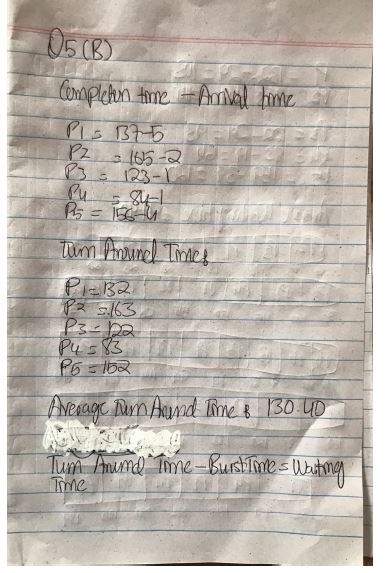 Q5 (B)
Completion time - Arrival time
P1 = 137-5
P2 = 165-2
P3 = 123-1
P4 = 84-1
P5 = 156-4
Turn Around Times
P1 = 132
P2 = 163
P3 = 122
P4 = 83
P5 = 152
Average Turn Around Time & 130.40
Turn Around Time - Burst Time = Waiting
Time